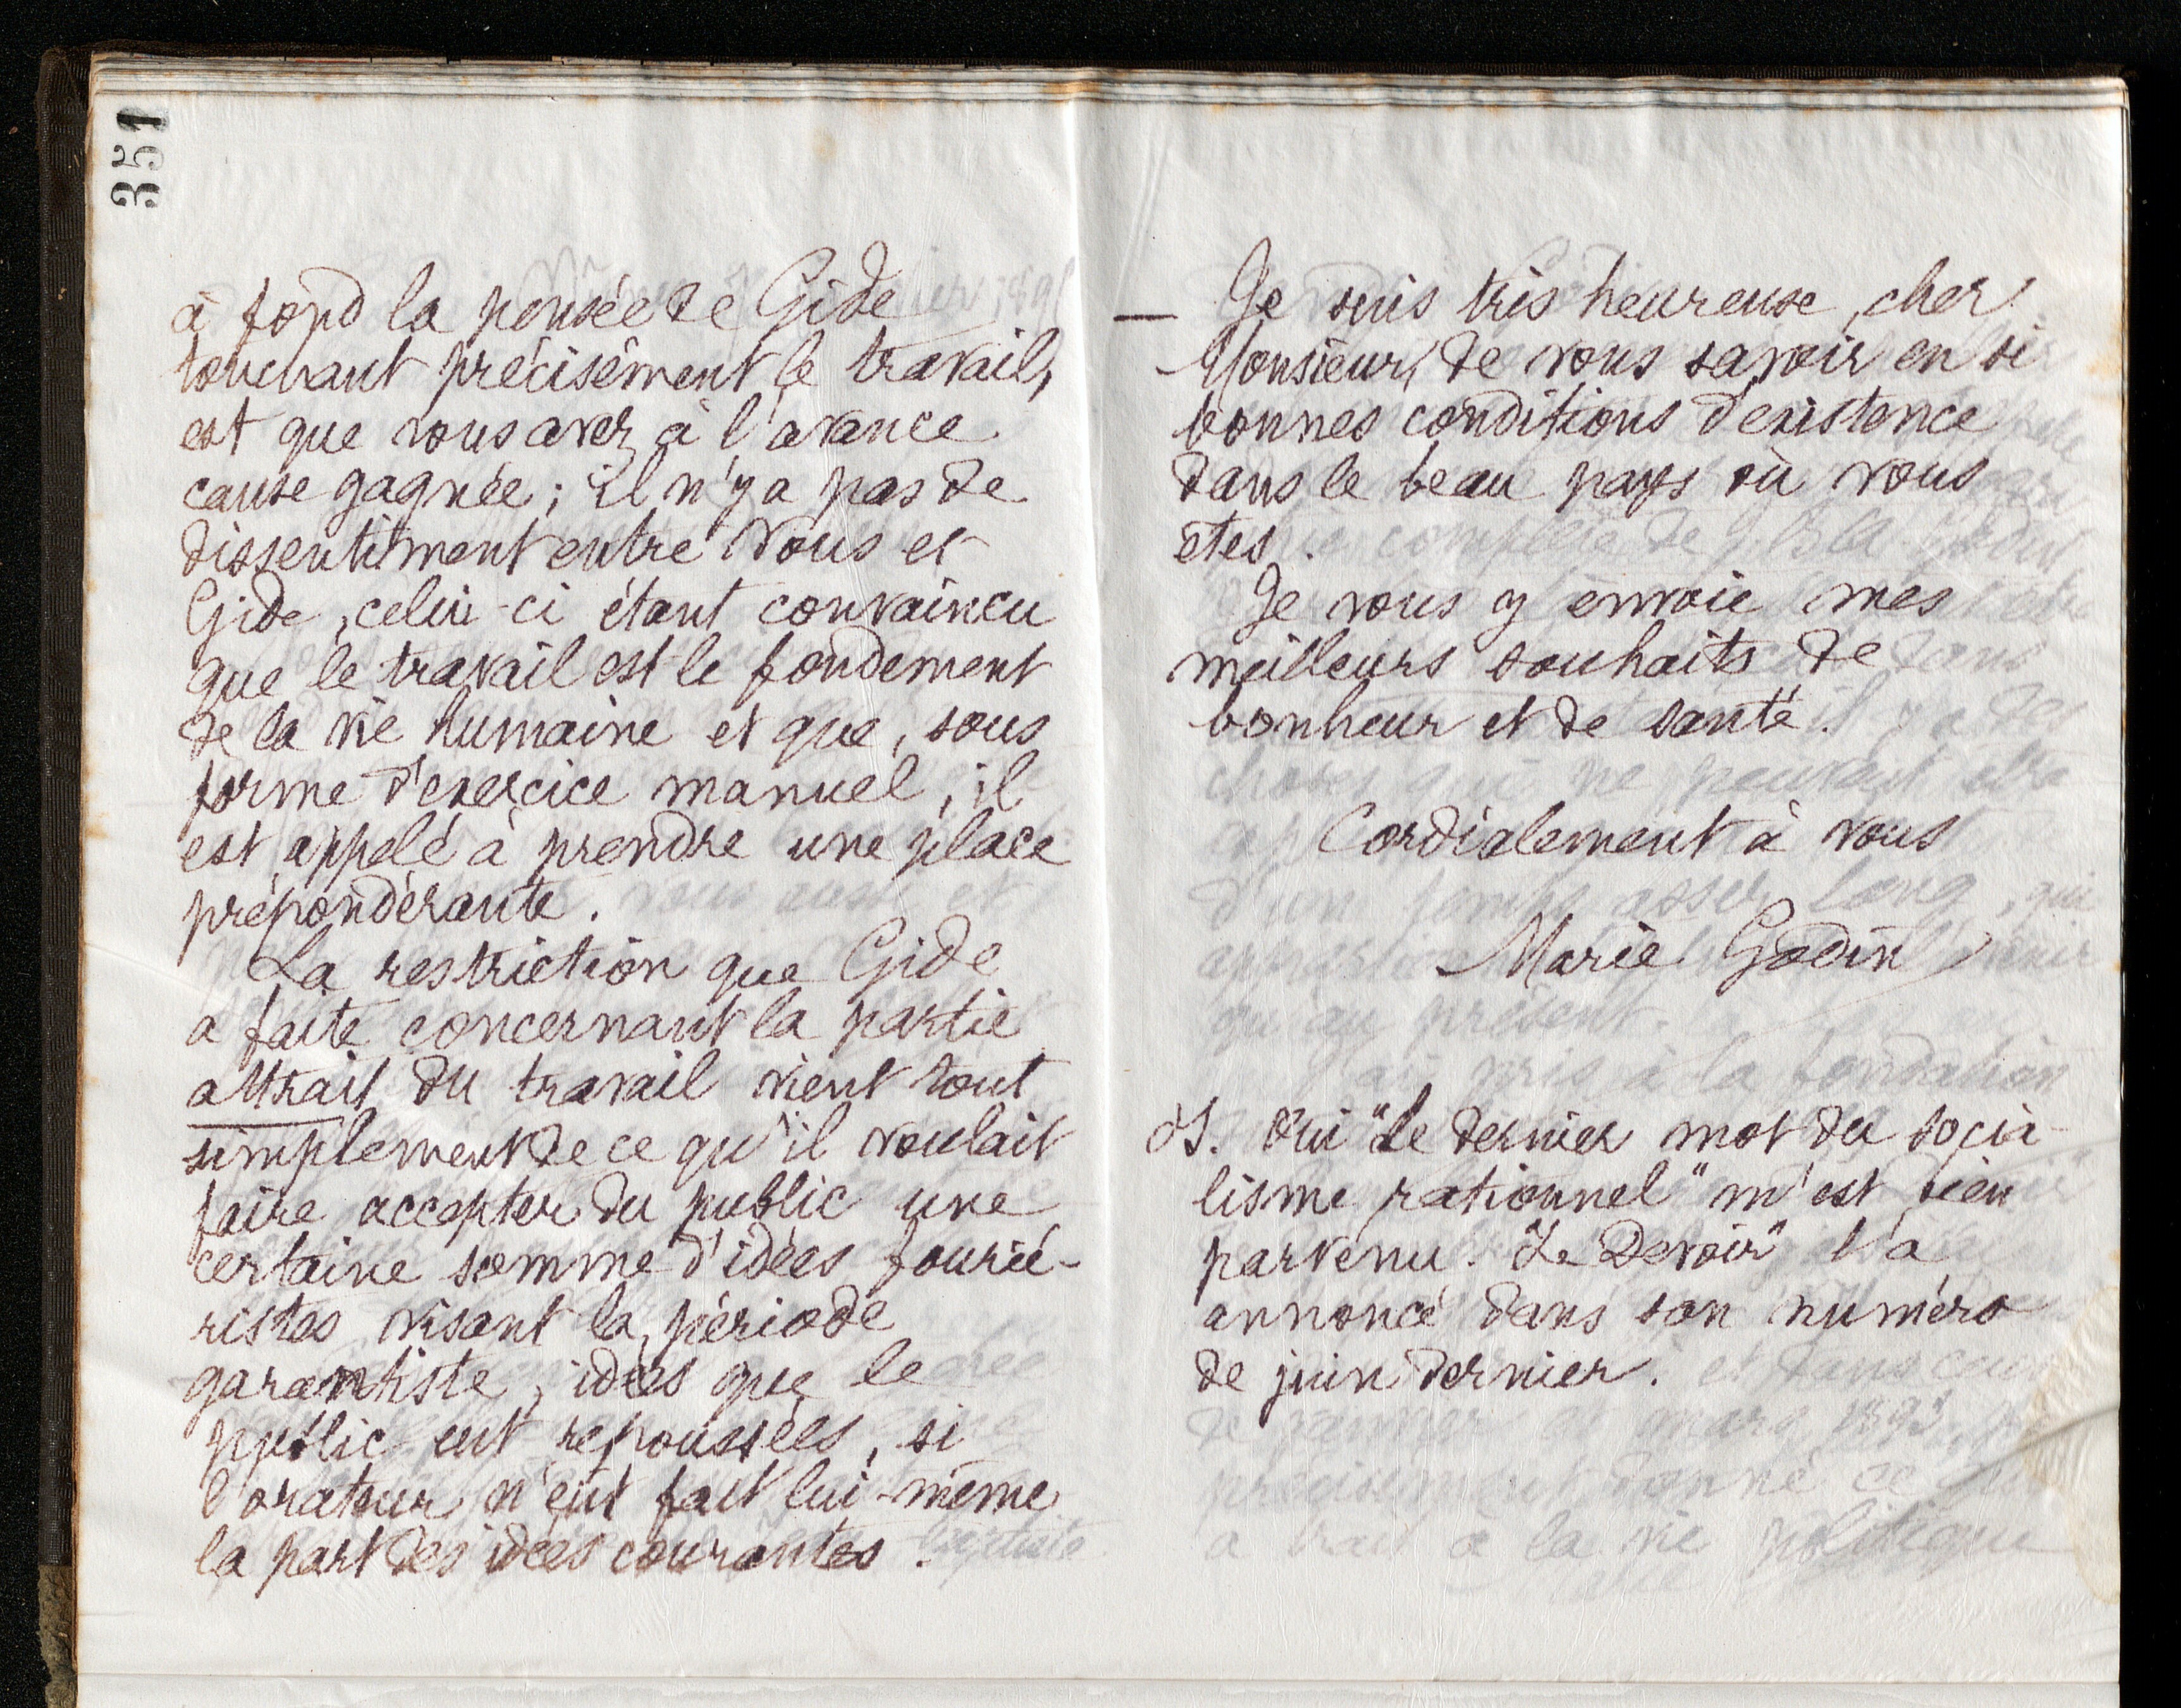 351
à fond la pensée de Gide
touchant précisément le travail,
est que vous avez à l'avance
cause gagnée ; il n'y a pas de
dissentiment entre vous et
Gide, celui-ci étant convaincu
que le travail est le fondement
de la vie humaine et que, sous
forme d'exercice manuel, il
est appelé à prendre une place
prépondérante.
La restriction que Gide
a faite concernant la partie
attrait du travail vient tout
simplement de ce qu'il voulait
faire accepter du public une
certaine somme d'idées fourié-
ristes visant la période
garantiste, idées que le
public eut repoussées, si
l'orateur n'eut fait lui-même
la part des idées courantes.
— Je suis très heureuse, cher
Monsieur, de vous savoir en si
bonnes conditions d'existence
dans le beau pays où vous
êtes.
Je vous y envoie mes
meilleurs souhaits de
bonheur et de santé.
Cordialement à vous
Marie Godin
PS. Oui "Le dernier mot du socia-
lisme rationnel" m'est bien
parvenu. "Le Devoir" l'a
annoncé dans son numéro
de juin dernier.